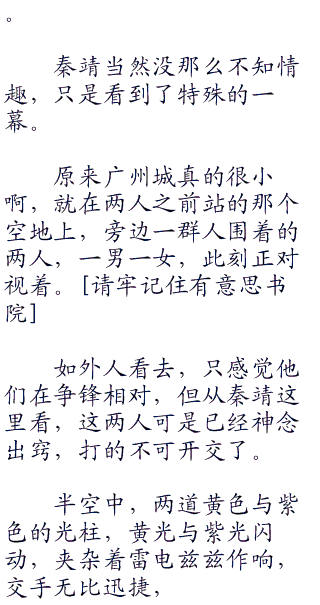 。
秦靖当然没那么不知情
趣，只是看到了特殊的一
幕。
原来广州城真的很小
啊，就在两人之前站的那个
空地上，旁边一群人围着的
两人，一男一女，此刻正对
视着。[请牢记住有意思书
院]
如外人看去，只感觉他
们在争锋相对，但从秦靖这
里看，这两人可是已经神念
出窍，打的不可开交了。
半空中，两道黄色与紫
色的光柱，黄光与紫光闪
动，夹杂着雷电兹兹作响，
交手无比迅捷，